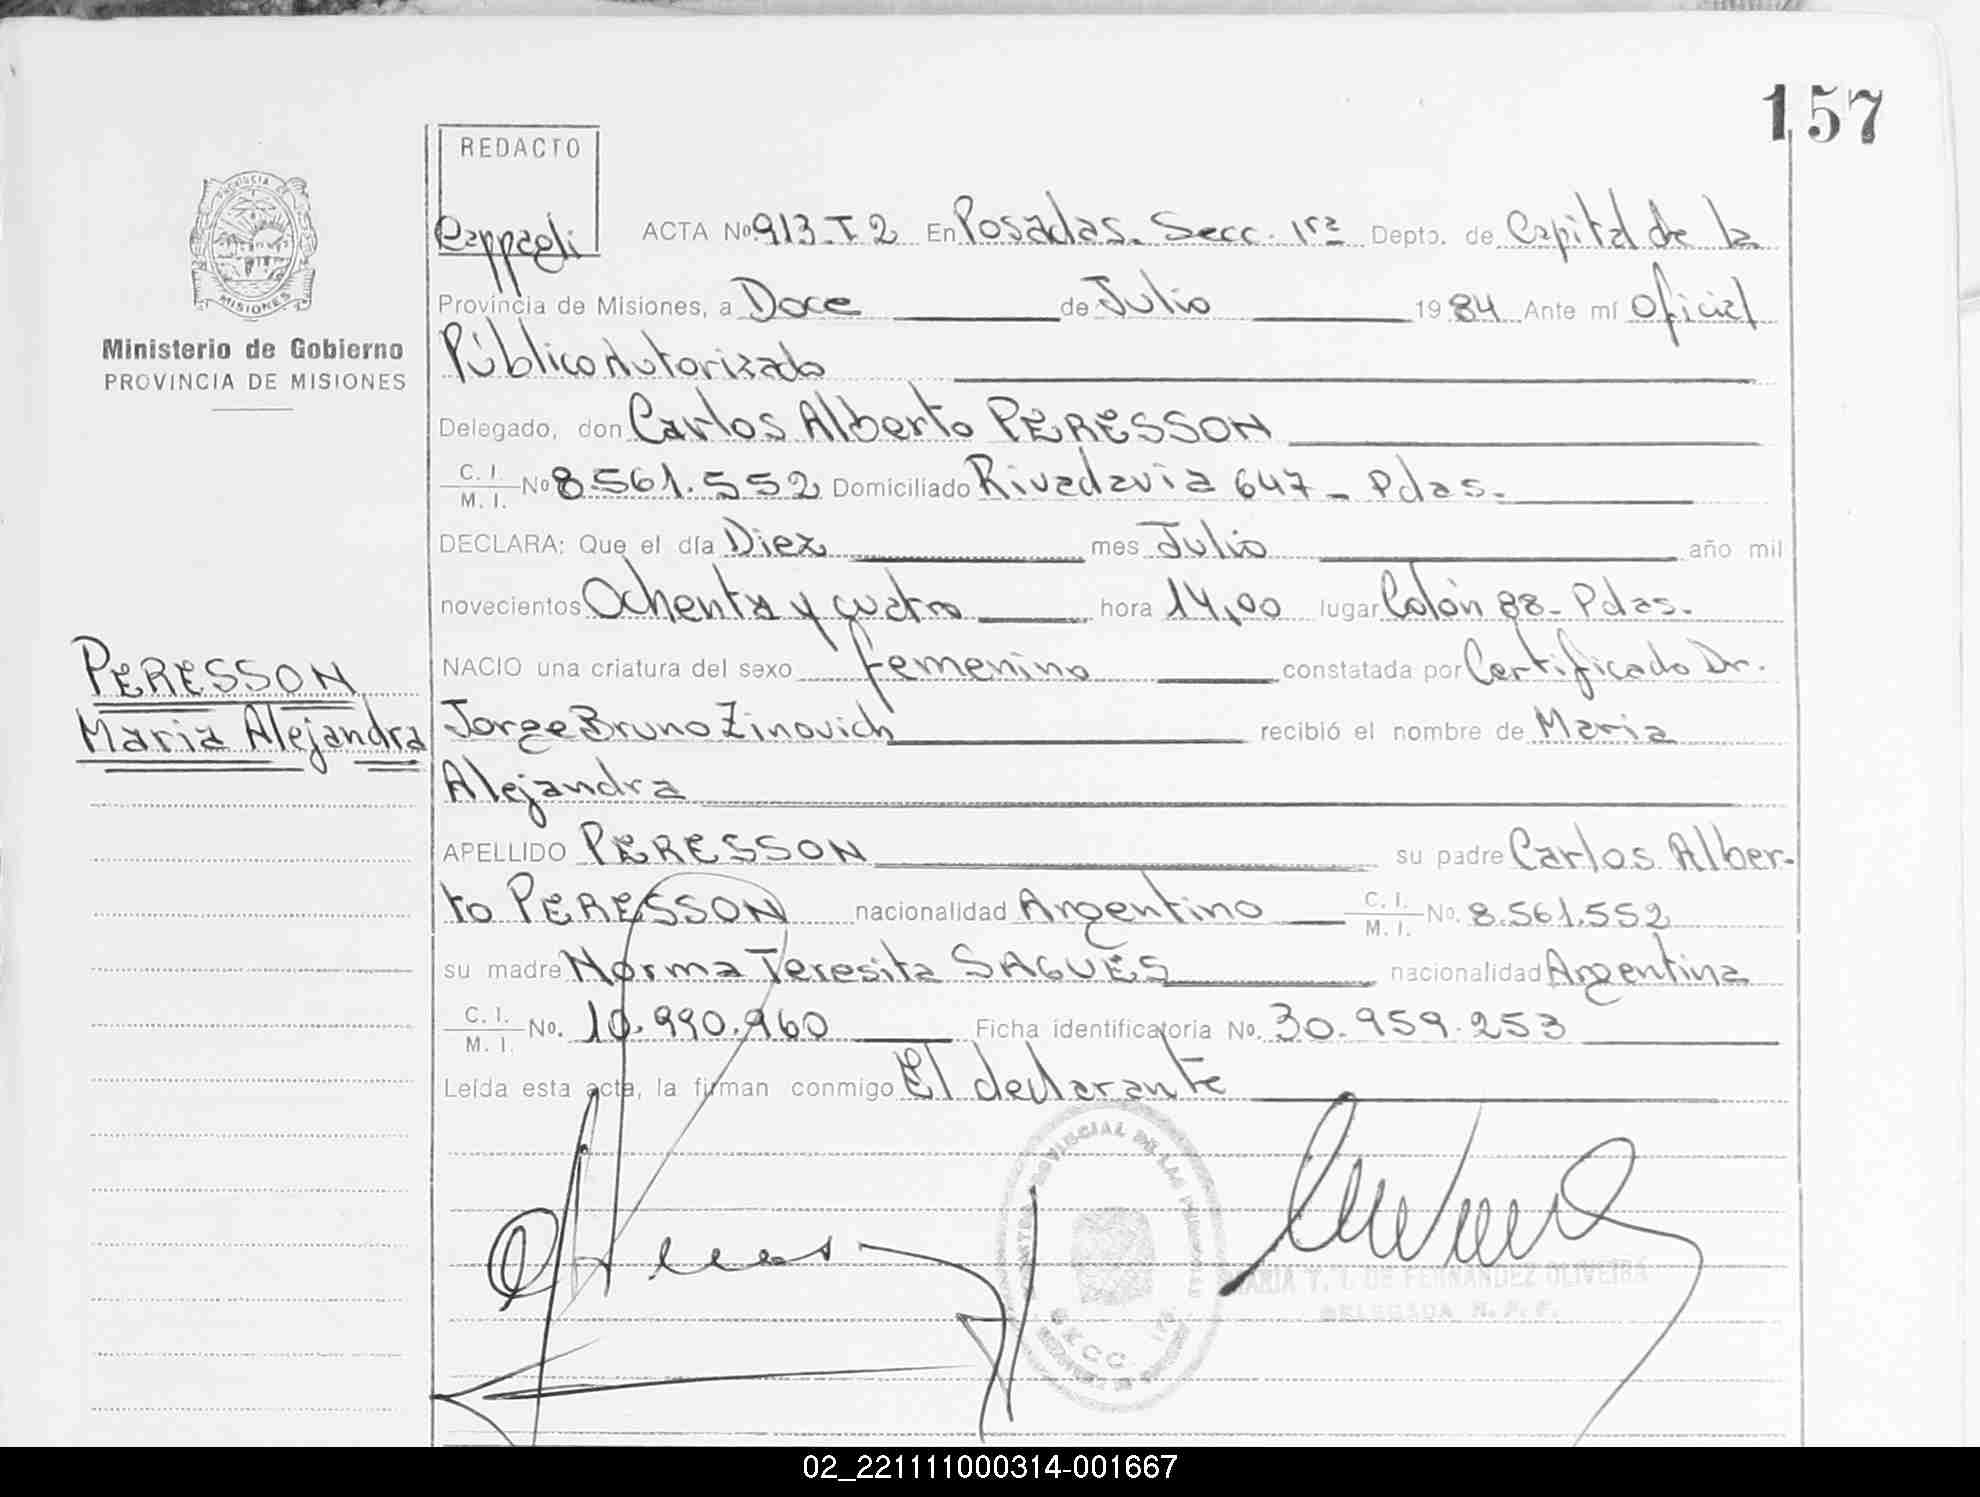 157
REDACTO
Cappagli
PROVINCIA DE
MISIONES
Ministerio de Gobierno
PROVINCIA DE MISIONES
ACTA No 913-T 2 En Posadas. Secc. 1ra Depto. de Capital de la
Provincia de Misiones, a Doce de Julio 1984 Ante mí Oficial
Público Autorizado
Delegado, don Carlos Alberto PERESSON
C. I. M. I. No 8.561.552 Domiciliado Rivadavia 647 - Pdas.
DECLARA: Que el día Diez mes Julio año mil
novecientos Ochenta y cuatro hora 14,00 lugar Colón 88- Pdas.
NACIO una criatura del sexo femenino constatada por Certificado Dr.
PERESSON
Maria Alejandra
Jorge Bruno Zinovich recibió el nombre de Maria
Alejandra
APELLIDO PERESSON su padre Carlos Alber-
to PERESSON nacionalidad Argentino C. I. M. I. No. 8.561.552
su madre Norma Teresita SAGUES nacionalidad Argentina
C. I. M. I. No. 10.990.960 Ficha identificatoria No. 30.959.253
Leída esta acta, la firman conmigo El declarante
PROVINCIAL DE LAS PERSONAS
MARIA Y. L. DE FERNANDEZ OLIVEIRA
DELEGADA R. P. P.
02_221111000314-001667